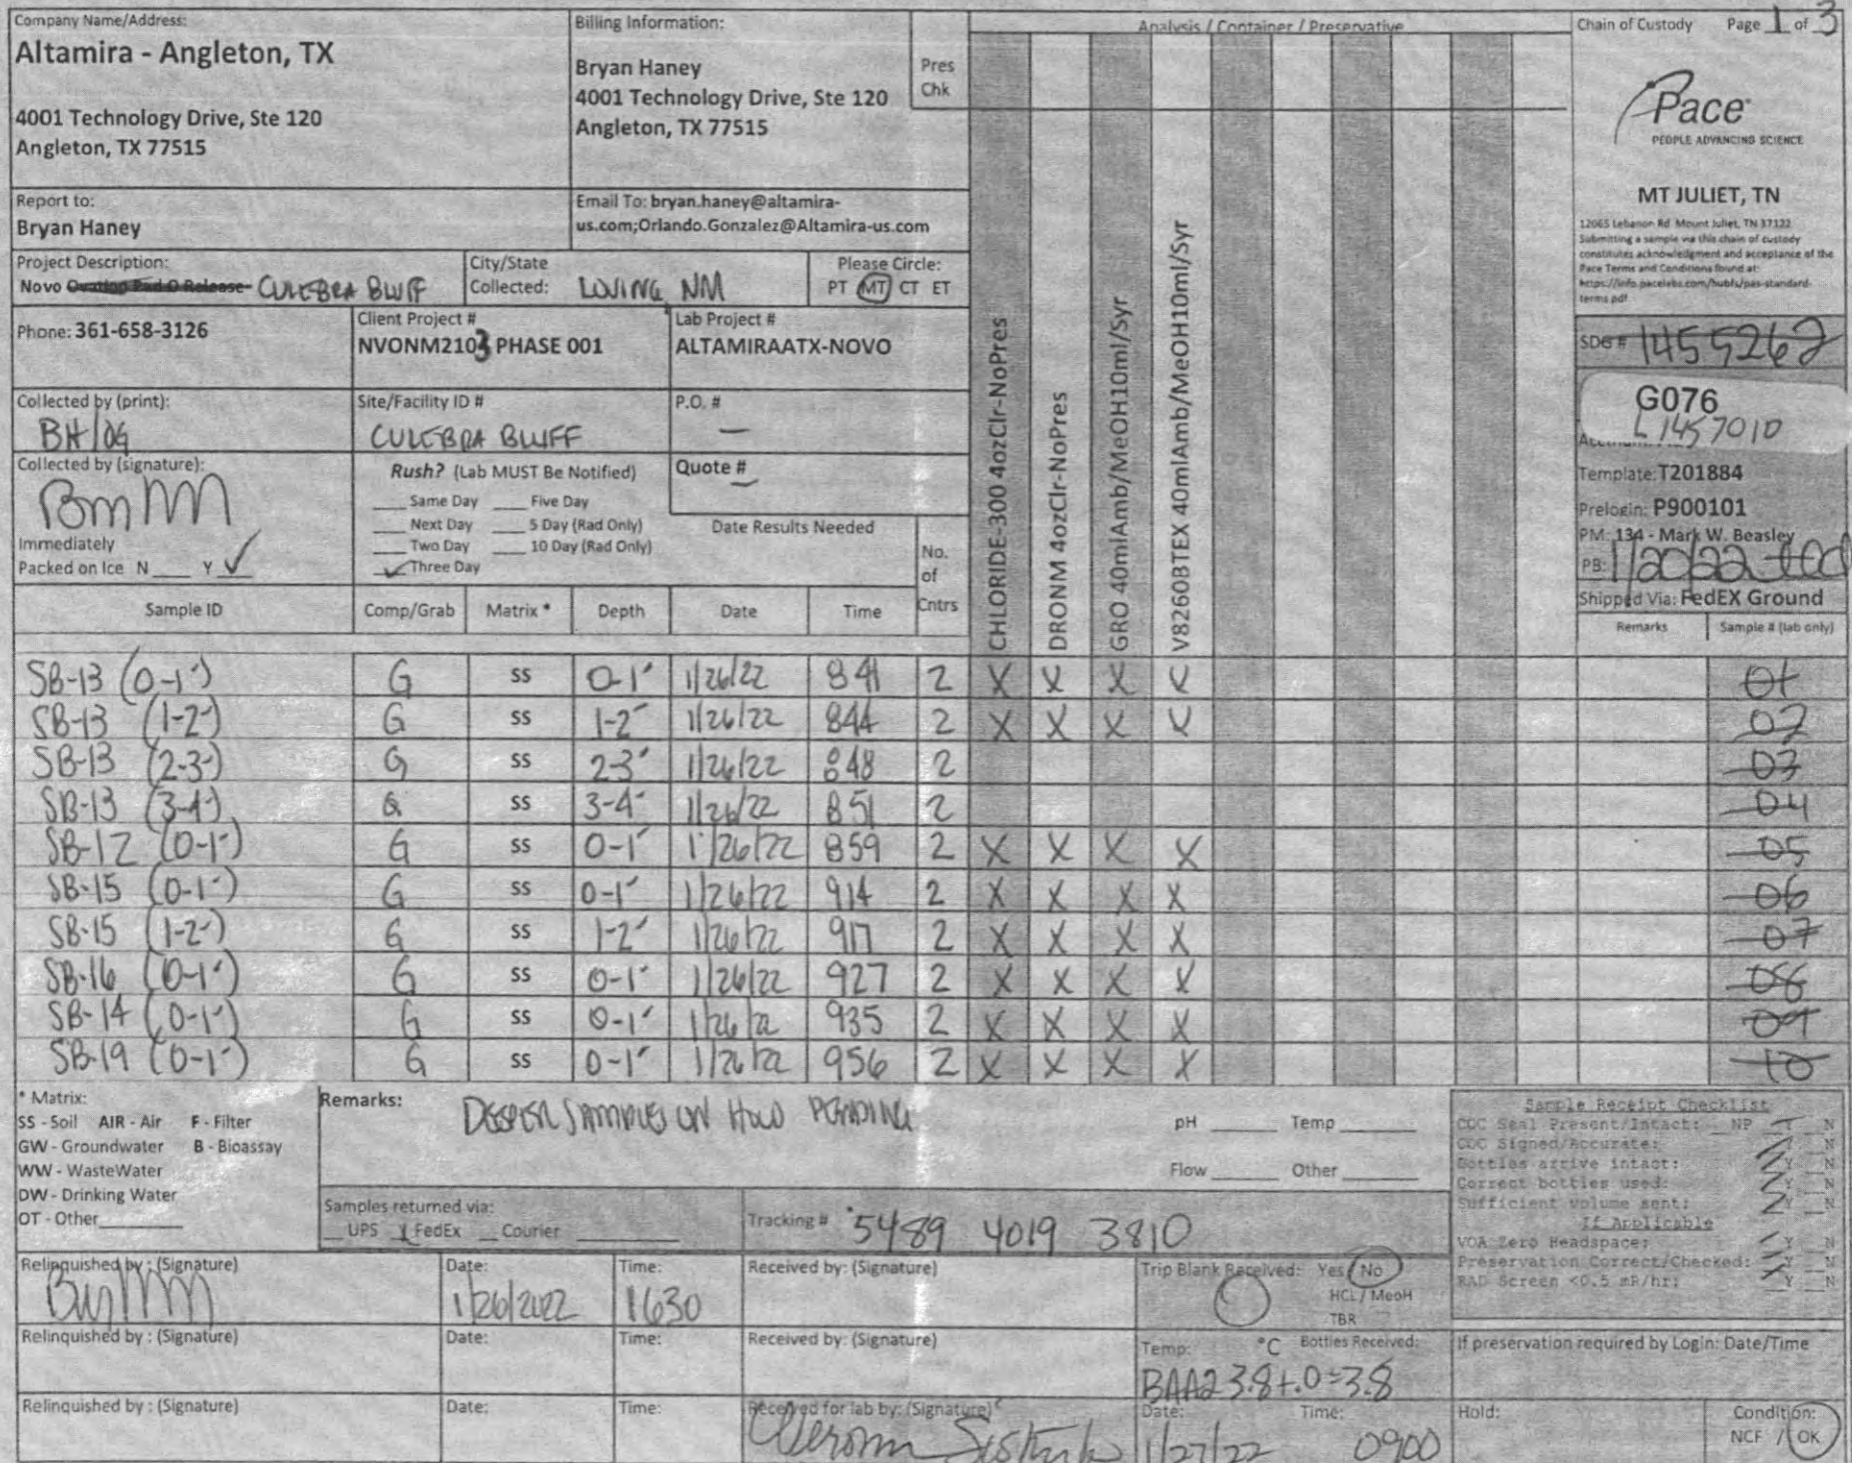 Company Name/Address:
Altamira - Angleton, TX
4001 Technology Drive, Ste 120
Angleton, TX 77515
Billing Information:
Bryan Haney
4001 Technology Drive, Ste 120
Angleton, TX 77515
Pres
Chk
Analysis / Container / Preservative
Chain of Custody Page 1 of 3
Pace
PEOPLE ADVANCING SCIENCE
MT JULIET, TN
12065 Lebanon Rd Mount Juliet, TN 37122
Submitting a sample via this chain of custody
constitutes acknowledgment and acceptance of the
Pace Terms and Conditions found at:
https://info.pacelabs.com/hubfs/pas-standard-
terms.pdf
Report to:
Bryan Haney
Email To: bryan.haney@altamira-
us.com;Orlando.Gonzalez@Altamira-us.com
Project Description:
Novo CULEBRA BLUFF
City/State
Collected: LOVING NM
Please Circle:
PT MT CT ET
Phone: 361-658-3126
Client Project #
NVONM2103 PHASE 001
Lab Project #
ALTAMIRAATX-NOVO
SDG # 1455262
G076
L1457010
Template: T201884
Prelogin: P900101
PM: 134 - Mark W. Beasley
PB: 1/20/22
Shipped Via: FedEX Ground
Remarks Sample # (lab only)
Collected by (print):
BH/OG
Site/Facility ID #
CULEBRA BLUFF
P.O. #
—
Collected by (signature):
Immediately
Packed on Ice N ___ Y ✓
Rush? (Lab MUST Be Notified)
___ Same Day ___ Five Day
___ Next Day ___ 5 Day (Rad Only)
___ Two Day ___ 10 Day (Rad Only)
✓ Three Day
Quote #
—
Date Results Needed
No.
of
Cntrs
CHLORIDE-300 4ozClr-NoPres
DRONM 4ozClr-NoPres
GRO 40mlAmb/MeOH10ml/Syr
V8260BTEX 40mlAmb/MeOH10ml/Syr
Sample ID Comp/Grab Matrix * Depth Date Time
SB-13 (0-1') G SS 0-1' 1/26/22 841 2 X X X X 01
SB-13 (1-2') G SS 1-2' 1/26/22 844 2 X X X X 02
SB-13 (2-3') G SS 2-3' 1/26/22 848 2 03
SB-13 (3-4') G SS 3-4' 1/26/22 851 2 04
SB-12 (0-1') G SS 0-1' 1/26/22 859 2 X X X X 05
SB-15 (0-1') G SS 0-1' 1/26/22 914 2 X X X X 06
SB-15 (1-2') G SS 1-2' 1/26/22 917 2 X X X X 07
SB-16 (0-1') G SS 0-1' 1/26/22 927 2 X X X X 08
SB-14 (0-1') G SS 0-1' 1/26/22 935 2 X X X X 09
SB-19 (0-1') G SS 0-1' 1/26/22 956 2 X X X X 10
* Matrix:
SS - Soil AIR - Air F - Filter
GW - Groundwater B - Bioassay
WW - WasteWater
DW - Drinking Water
OT - Other
Remarks: DEEPER SAMPLES ON HOLD PENDING
pH ___ Temp ___
Flow ___ Other ___
Sample Receipt Checklist
COC Seal Present/Intact: NP Y N
COC Signed/Accurate: Y N
Bottles arrive intact: Y N
Correct bottles used: Y N
Sufficient volume sent: Y N
If Applicable
VOA Zero Headspace: Y N
Preservation Correct/Checked: Y N
RAD Screen <0.5 mR/hr: Y N
Samples returned via:
UPS X FedEx Courier
Tracking # 5489 4019 3810
Relinquished by : (Signature)
Date:
1/26/2022
Time:
1630
Received by: (Signature)
Trip Blank Received: Yes / No
HCL / MeoH
TBR
Relinquished by : (Signature)
Date:
Time:
Received by: (Signature)
Temp: °C Bottles Received:
BAA2 3.8+.0=3.8
If preservation required by Login: Date/Time
Relinquished by : (Signature)
Date:
Time:
Received for lab by: (Signature)
Date:
1/27/22
Time:
0900
Hold:
Condition:
NCF / OK